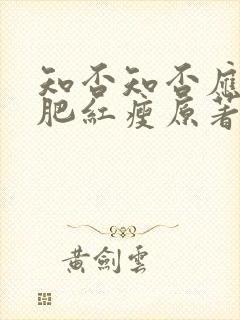 知否知否應
肥紅瘦原著
黃劍雲